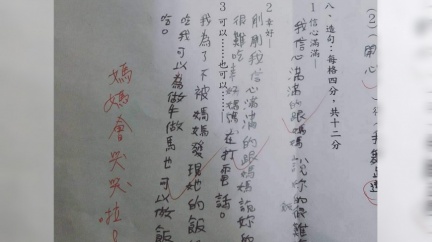 (2)(開心
八、造句：每格四分，共十二分
1 信心滿滿—
我信心滿滿的跟媽媽說妳的飯難
2 幸好—
剛剛我信心滿滿的跟媽媽說妳的
很難吃幸好媽媽在打電話。
3 可以……也可以……—
我為了不被媽媽發現她的飯
吃。我可以為做牛做馬也可以做飯
媽媽會哭哭啦